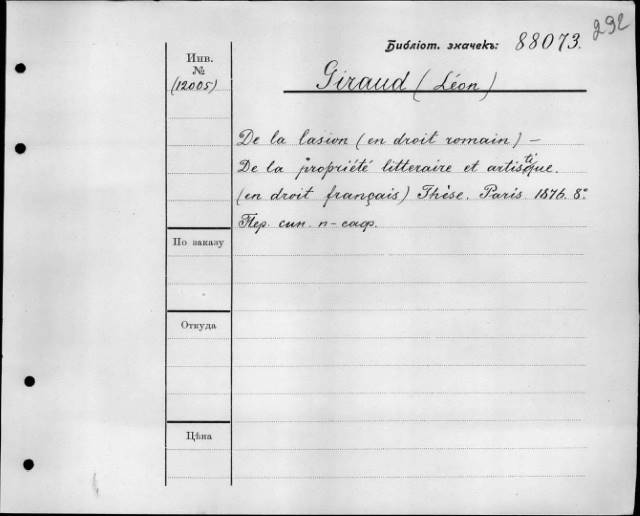 292
Библіот. значекъ: 88073.
Инв.
№
(12005)
Giraud (Léon)
De la lasion (en droit romain) –
De la propriété litteraire et artistique.
(en droit français) Thèse. Paris 1876. 8º
Пер. син. п-саф.
По заказу
Откуда
Цѣна